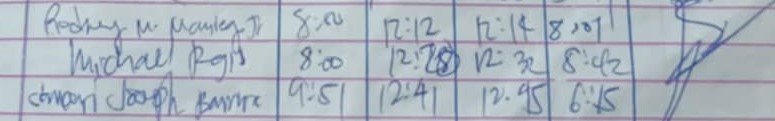 Rodney M Manley Jr 8:00 12:12 12:14 8:07
Michael Regis 8:00 12:28 12:32 8:42
Joseph 9:51 12:41 12:45 6:15